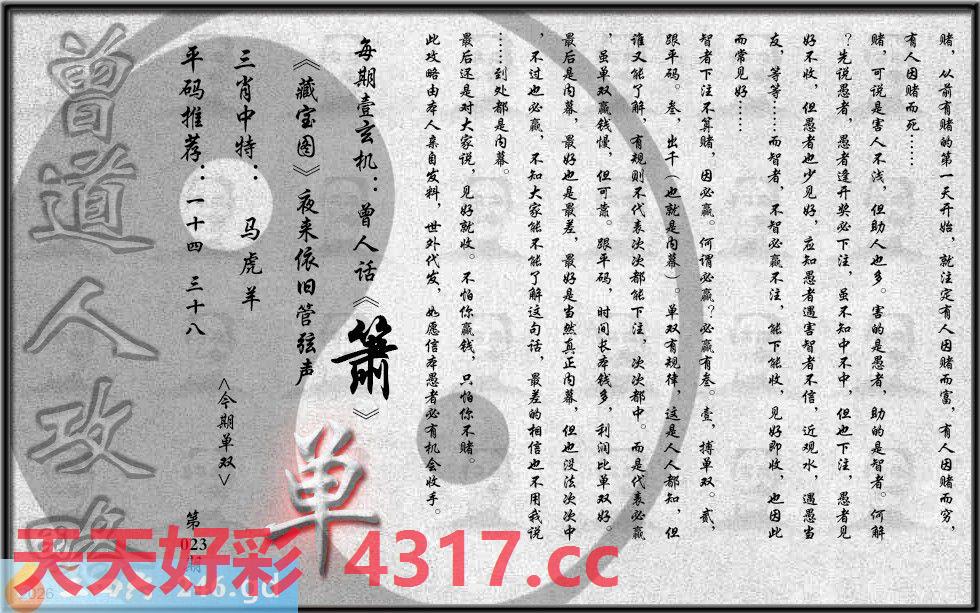 赌，从前有赌的第一天开始，就注定有人因赌而富，有人因赌而穷，
有人因赌而死……
赌，可说是害人不浅，但助人也多。害的是愚者，助的是智者。何解
？先说愚者，愚者逢开奖必下注，虽不知中不中，但也下注，愚者见
好不收，但愚者也少见好，应知愚者遇害智者不信，近观水，遇愚当
友，等等……而智者，不智必赢不注，能下能收，见好即收，也因此
而常见好……
智者下注不算赌，因必赢。何谓必赢？必赢有叁。壹，搏单双。贰，
跟平码。叁，出千（也就是内幕）。单双有规律，这是人人都知，但
谁又能了解，有规则不代表次次都能下注，次次都中。而是代表必赢
，虽单双赢钱慢，但可靠。跟平码，时间长本钱多，利润比单双好。
最后是内幕，最好也是最差，最好是当然真正内幕，但也没法次次中
，不过也必赢，不知大家能不能了解这句话，最差的相信也不用我说
……到处都是内幕。
最后还是对大家说，见好就收。不怕你赢钱，只怕你不赌。
此攻略由本人亲自发料，世外代发，如愿信本愚者必有机会收手。
每期壹玄机：曾人话《簫》
《藏宝图》夜来依旧管弦声
三肖中特：马虎羊
平码推荐：一十四 三十八
<今期单双>
单
第
023
期
曾道人攻略
天天好彩 4317.cc
2026
246.gd